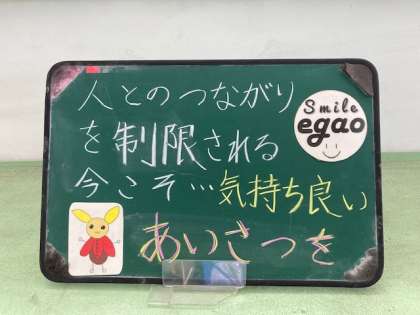 人とのつながり
を制限される
今こそ…気持ち良い
あいさつを
Smile
egao